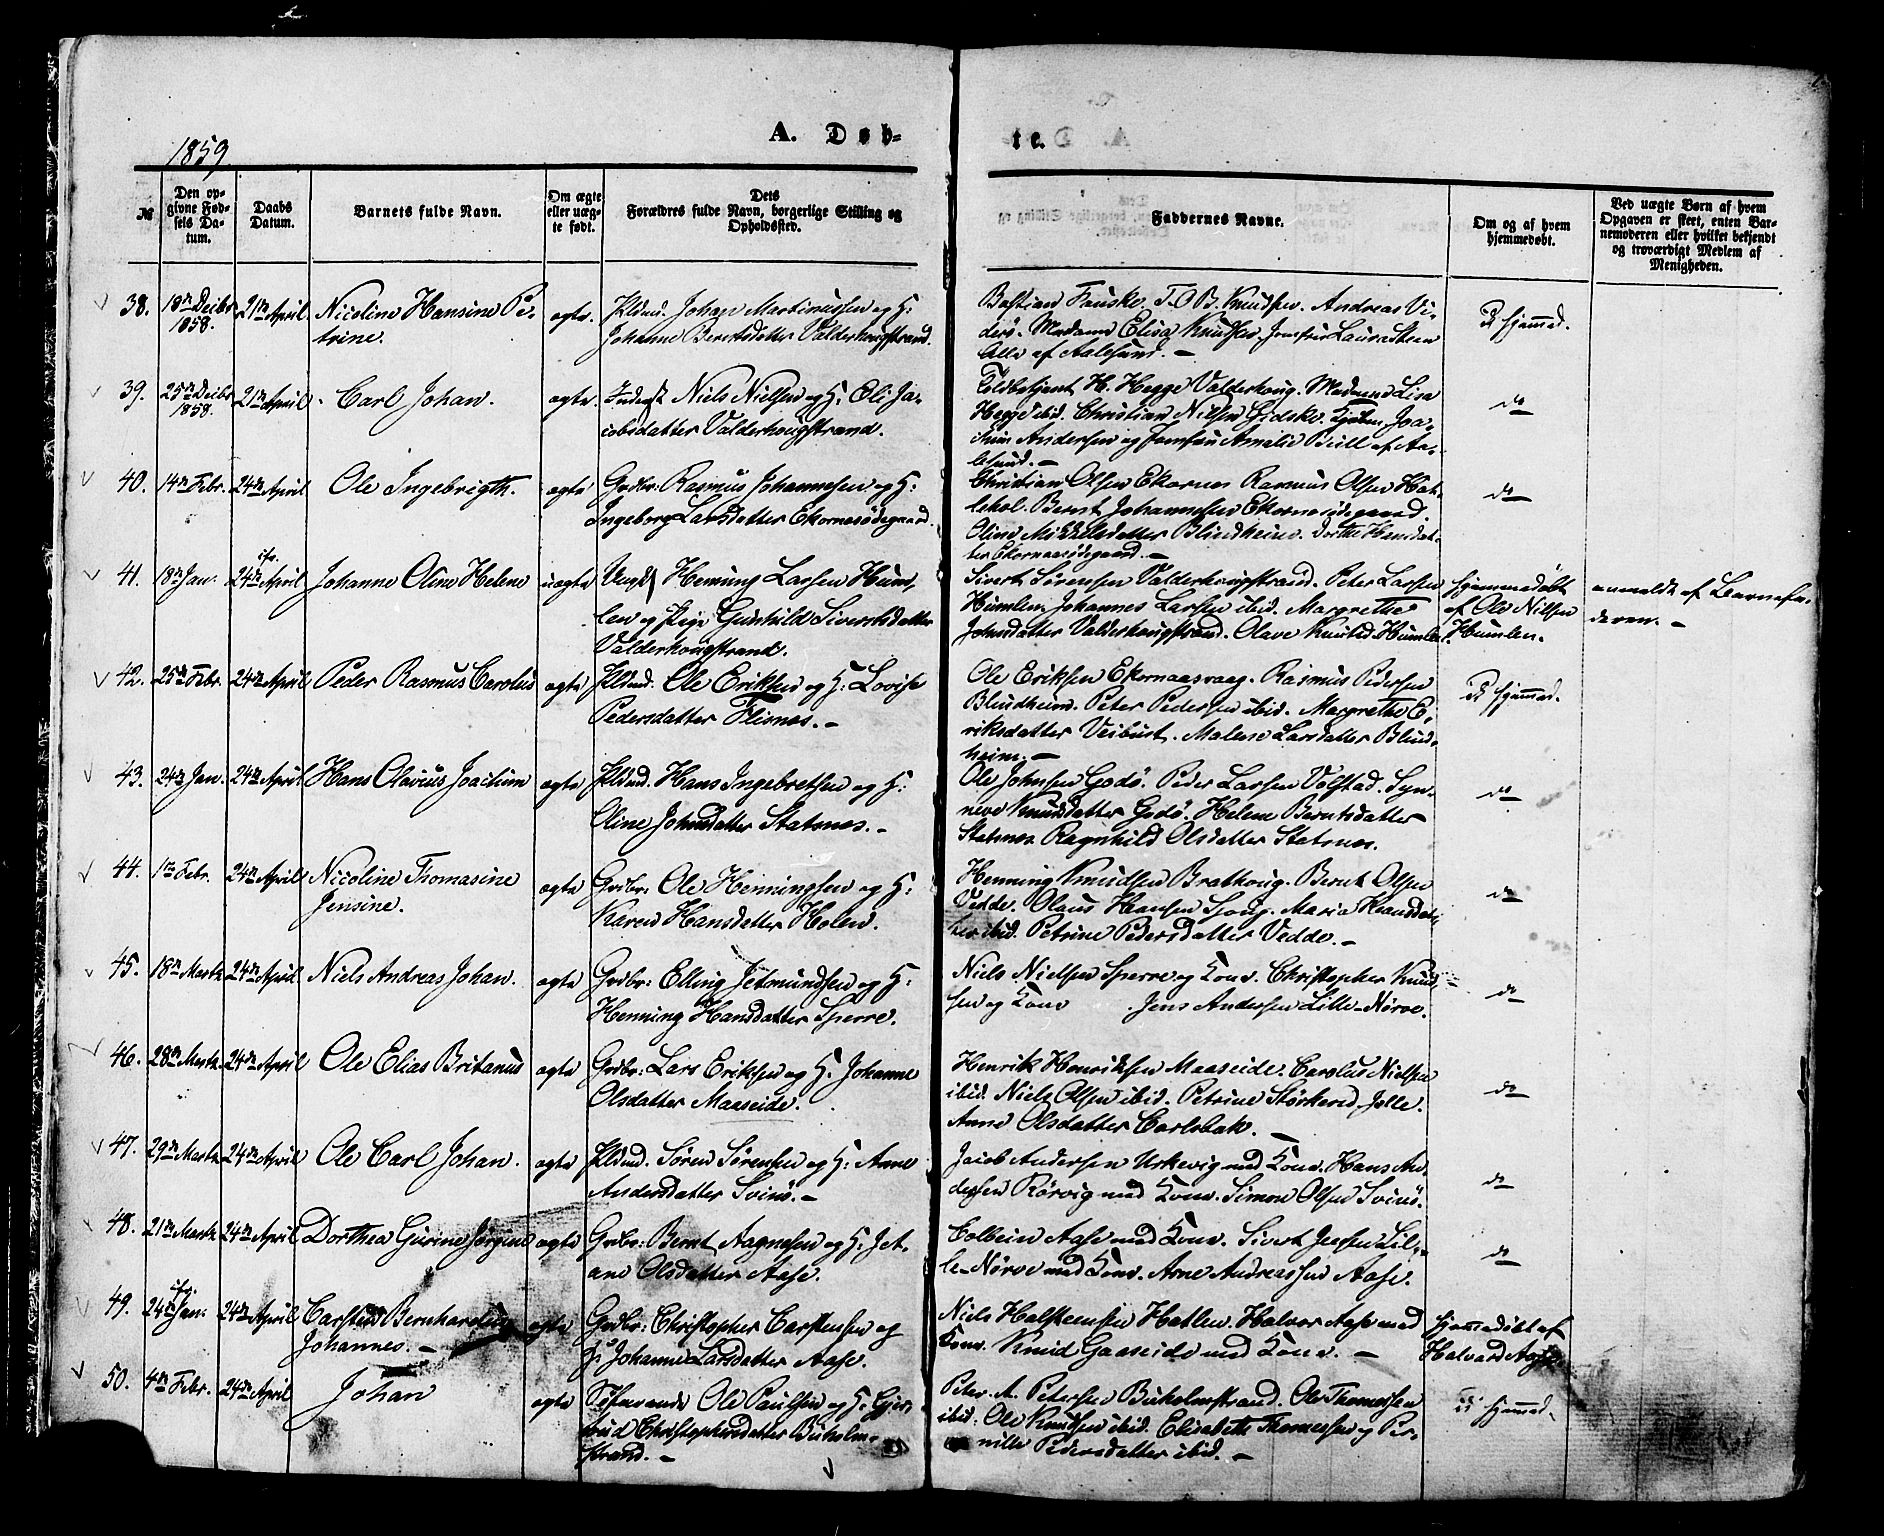 1859
A. Døb-
te.
№
Den op-
givne Fød-
sels Da-
tum.
Daabs
Datum.
Barnets fulde Navn.
Om ægte
eller uæg-
te født.
Dets
Forældres fulde Navn, borgerlige Stilling og
Opholdssted.
Faddernes Navne.
Om og af hvem
hjemmedøbt.
Ved uægte Børn af hvem
Opgaven er skeet, enten Bar-
nemoderen eller hvilket bekjendt
og troværdigt Medlem af
Menigheden.
38. 18de Decbr 1858. 21de April Nicoline Hansine Pe-
trine.
ægte.
Johan Martinussen og H:
Johanne Berntsdatter Valderhougstrand.
Bastian Fauske. T. O. B. Knudsen. Andreas Vi-
derö. Madame Elisa Knudsen, Jomfru Laura Steen
Alle af Aalesund. –
Ei hjemmed.
39. 25de Decbr 1858. 21de April Carl Johan.
ægte
Inderst Niels Nielsen og H: Oli Ja-
cobsdatter Valderhougstrand.
Toldbetjent H. Hegge Valderhoug. Madame Lisa
Hegge ibid. Christian Nilsen Gjidske. Kjøbm. Joa-
chim Andersen og Jomfru Amalie Bull af Aa-
lesund. –
do
40. 14de Febr. 24de April Ole Ingebrigth.
ægte
Grdbr: Rasmus Johannesen og H:
Ingeborg Larsdatter Ekornesödegaard.
Christian Olsen Ekornes Rasmus Olsen Hat-
lehol. Bernt Johannesen Ekornesödegaard
Oline Mikkelsdatter Blindheim. Dorthe Hansdat-
ter Ekornaasödegaard. –
do
41. 18de Jan. 24de April Johanne Oline Helene
uægte
Ungk Henning Larsen Hum-
len og Pige Gunhild Sivertsdatter
Valderhougstrand.
Sivert Sörensen Valderhougstrand. Peter Larsen
Humlen, Johannes Larsen ibid. Margrethe
Johnsdatter Valderhougstrand. Olave Knutsd. Humlen.
hjemmedöbt
af Ole Nilsen
Humlen.
anmeldt af Barnefa-
deren. –
42. 25de Febr. 24de April Peder Rasmus Carolus
ægte
Ole Eriksen og H: Lovise
Pedersdatter Flisnes. –
Ole Eriksen Ekornaasvaag. Rasmus Pedersen
Blindheim. Peter Pedersen ibid. Margrethe E-
riksdatter Veibust. Malene Larsdatter Blind-
heim. –
Ei hjemmed.
43. 24de Jan. 24de April Hans Olavus Joachim
ægte
Hans Ingebretsen og H:
Oline Johnsdatter Statsnes. –
Ole Johnsen Godö. Peder Larsen Volstad. Syn-
neve Knudsdatter Godö. Helene Berntsdatter
Statsnes Ragnhild Olsdatter Statsnes.
do
44. 1ste Febr. 24de April Nicoline Thomasine
Jensine.
ægte
Grdbr: Ole Henningsen og H:
Karen Hansdatter Holen.
Henning Knudsen Brathoug. Bernt Olsen
Vedde. Olaus Hansen Sjong. Maria Hansdat-
ter ibid. Petrine Pedersdatter Vedde. –
do
45. 18de Martz 24de April Niels Andreas Johan.
ægte
Grdbr: Elling Jetmundsen og H:
Henning Hansdatter Sperre.
Niels Nielsen Sperre og Kone. Christopher Knud-
sen og Kone. Jens Andersen Lille-Nörve.
do
46. 28de Martz. 24de April Ole Elias Britanus
ægte
Grdbr: Lars Eriksen og H: Johanne
Olsdatter Maaseide.
Henrik Henriksen Maaseide. Carolus Nielsen
ibid. Niels Olsen ibid. Petrine Störkersd. Jölle.
Anne Olsdatter Carlsbak. –
do
47. 29de Martz 24de April Ole Carl Johan.
ægte
Sören Sörensen og H: Anne
Andersdatter Svinö. –
Jacob Andersen Urkevig med Kone. Hans An-
dersen Rörvig med Kone. Simon Olsen Svinö.
do
48. 21de Martz 24de April Dorthea Gurine Jörgine
ægte
Grdbr: Bernt Aagnesen og H: Jet-
ane Olsdatter Aase.
Colbein Aase med Kone. Sivert Jensen Lil-
le-Nörve med Kone. Arne Andreassen Aase.
do
49. 24de Jan. 24de April Carsten Bernhardus
Johannes. –
ægte
Grdbr: Christopher Carstensen og
H: Johanne Larsdatter Aase.
Niels Halstensen Hatlen. Halvor Aase med
Kone. Knud Gaaseide med Kone. –
hjemmedöbt af
Halvard Aase
50. 4de Febr. 24de April Johan
ægte
Söfarende Ole Paulsen og H: Gjer-
trud Christophersdatter Buholm-
strand. –
Peter A. Petersen Buholmstrand. Ole Thomessen
ibid. Ole Knudsen ibid. Elisabeth Thomessen og Per-
nille Pedersdatter ibid. –
Ei hjemmed.